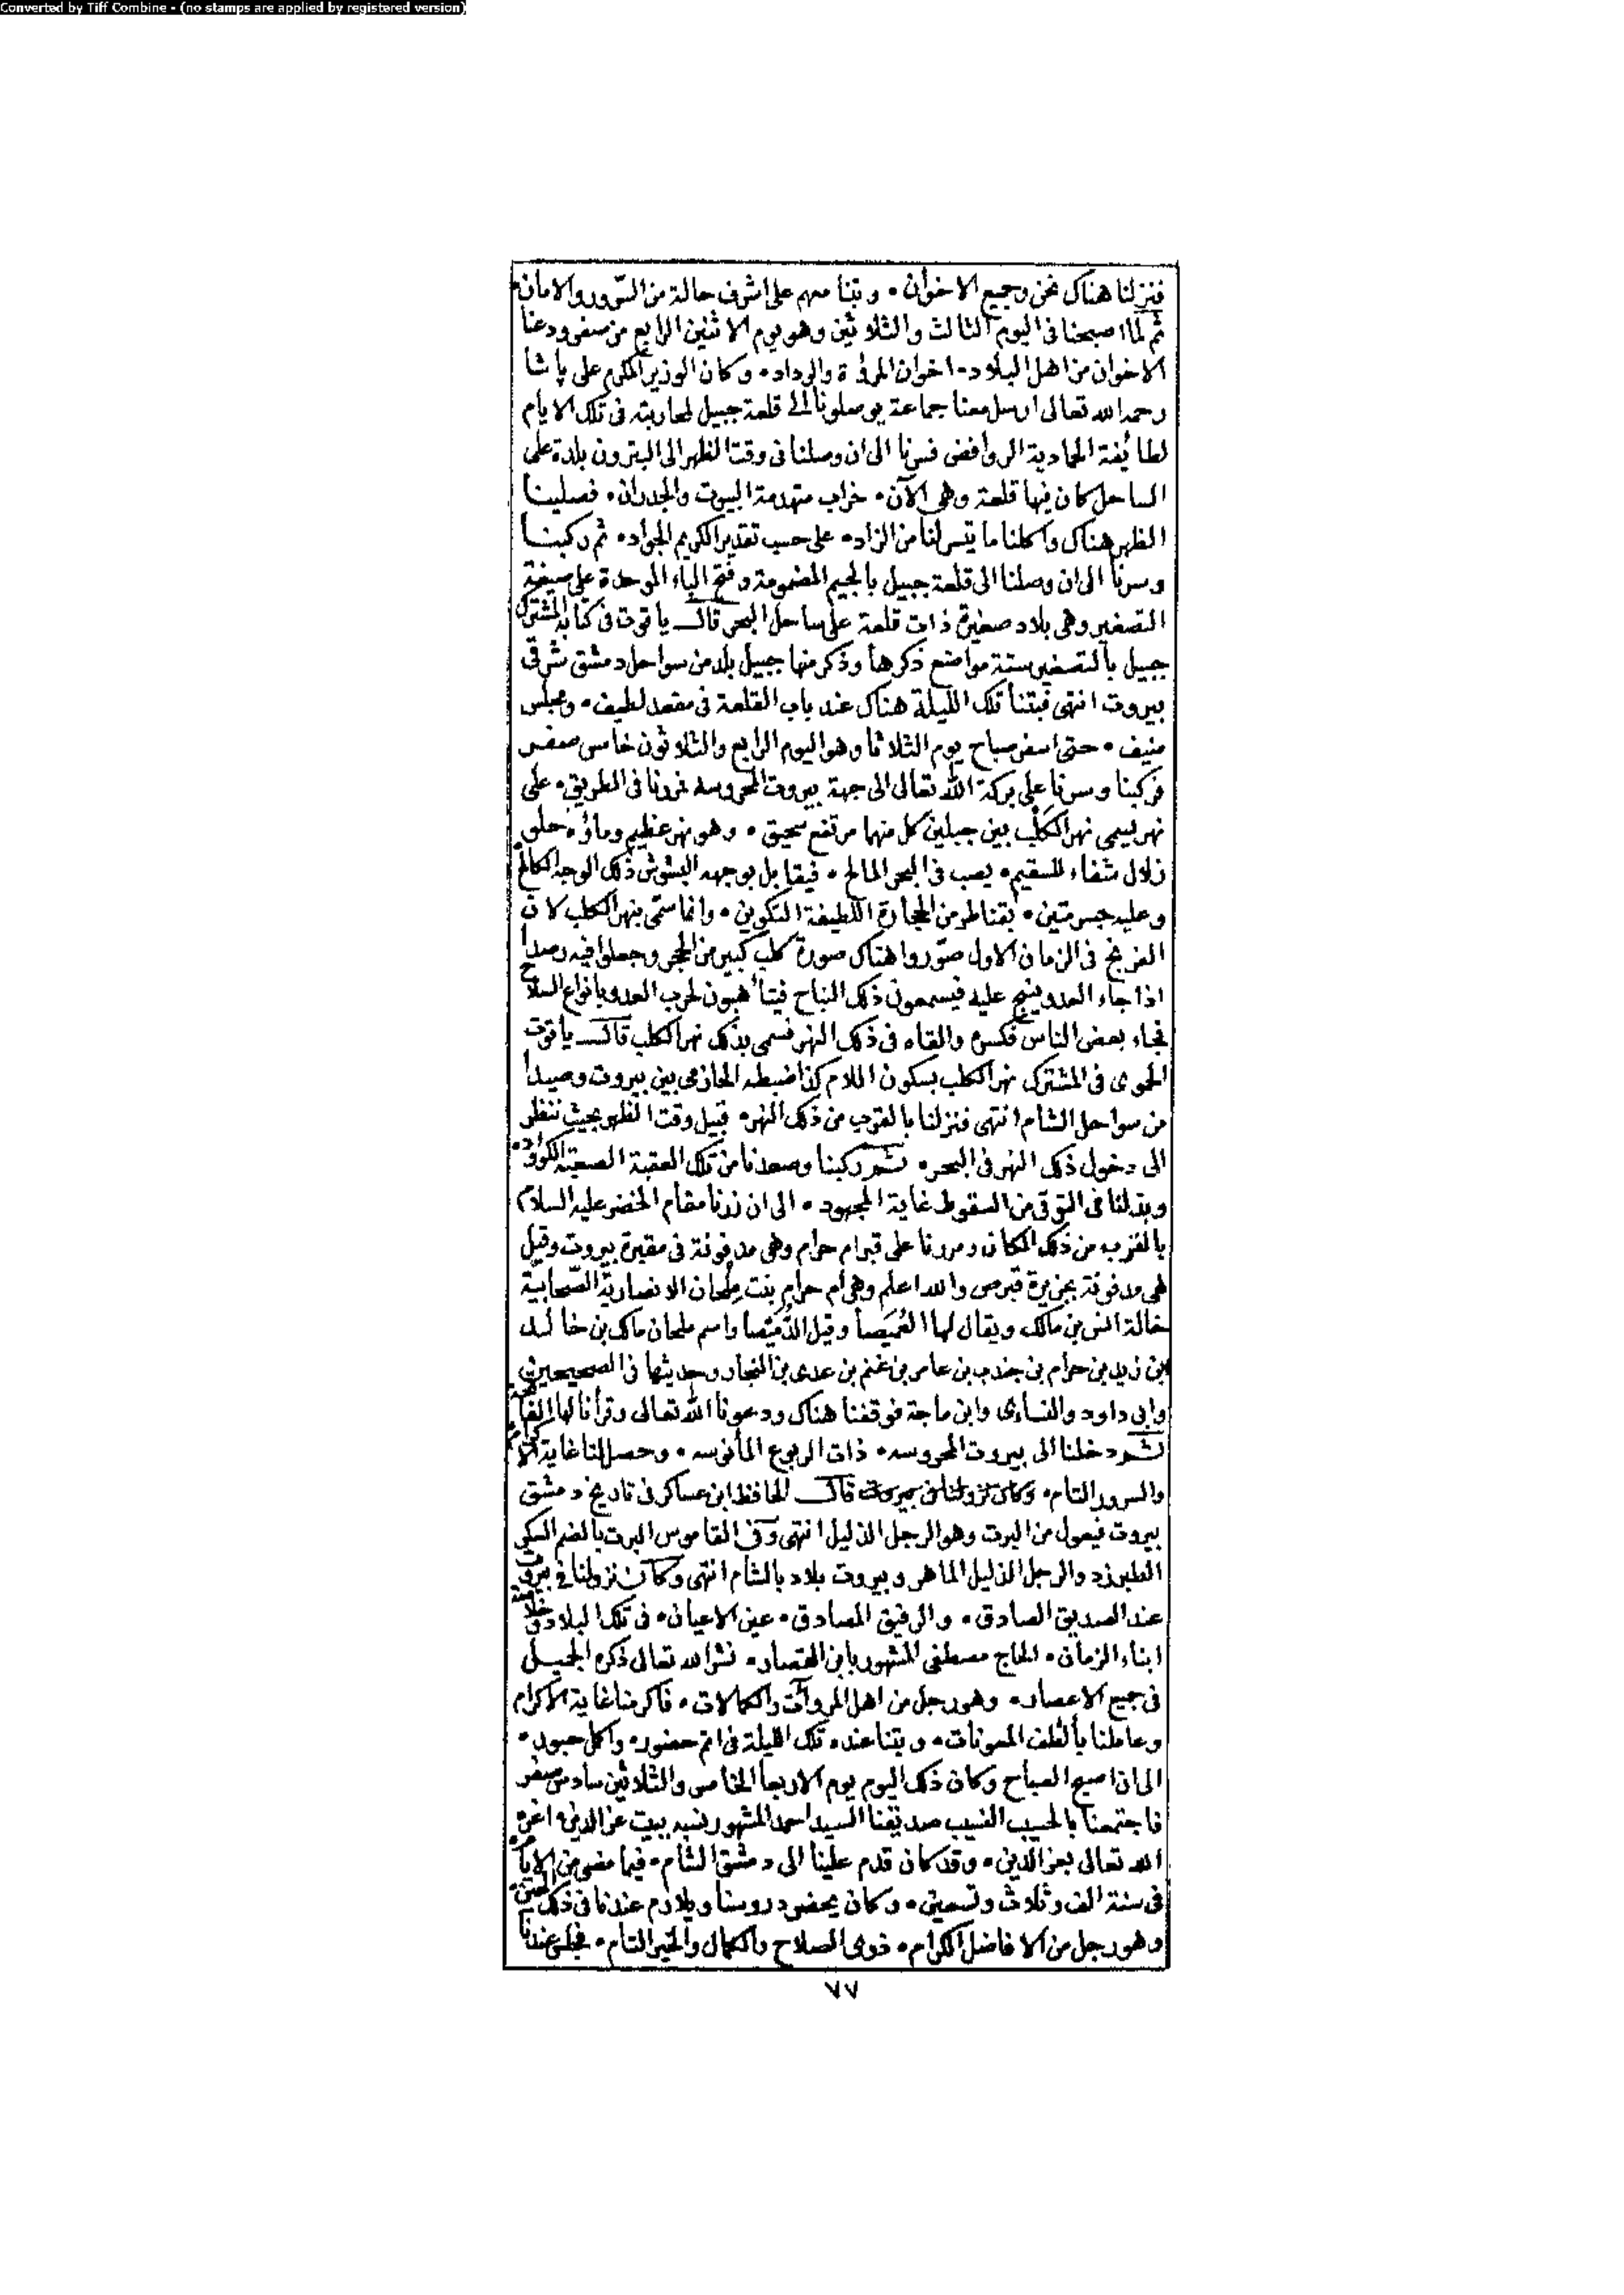 Converted by Tiff Combine - (no stamps are applied by registered version)
فنزلنا هناك نحن وجميع الاخوان • وبتنا معهم على اشرف حالة من السّرور والامان •
ثم لما اصبحنا فى اليوم الثالث والثلاثين وهو يوم الاثنين الرابع من صفر ودعنا
الاخوان من اهل البلاد • اخوان المرؤة والوداد • وكان الوزير المكرم على پاشا
رحمه الله تعالى ارسل معنا جماعة يوصلونا الى قلعة جبيل لمحاربته فى تلك الايام
لطائفة الحمادية الروافض فسرنا الى ان وصلنا فى وقت الظهر الى البترون بلدة على
الساحل كان فيها قلعة وهى الآن • خراب متهدمة البيوت والجدران • فصلينا
الظهر هناك واكلنا ما يتسر لنا من الزاد • على حسب تقدير الكريم الجواد • ثم ركبنا
وسرنا الى ان وصلنا الى قلعة جبيل بالجيم المضمومة وفتح الباء الموحدة على صيغة
التصغير وهى بلاد صغيرة ذات قلعة على ساحل البحر قال ياقوت فى كتابه المشترك
جبيل بالتصغير ستة مواضع ذكرها وذكر منها جبيل بلد من سواحل دمشق شرقى
بيروت انتهى فبتنا تلك الليلة هناك عند باب القلعة فى مقعد لطيف • ومجلس
منيف • حتى اسفر صباح يوم الثلاثا وهو اليوم الرابع والثلاثون خامس صفر
فركبنا وسرنا على بركة الله تعالى الى جهة بيروت المحروسه فمررنا فى الطريق • على
نهر يسمى نهر الكَلْب بين جبلين كل منهما مرتفع سحيق • وهو نهر عظيم وماؤه حلو
زلال شفاء للسقيم • يصب فى البحر المالح • فيقابل بوجهه البشوش ذلك الوجه الكالح
وعليه جسر متين • بقناطر من الحجارة اللطيفة التكوين • وانما سمّى بنهر الكلب لان
الفرنج فى الزمان الاول صوّروا هناك صورة كلب كبير من الحجر وجعلوا فيه رصدا
اذا جاء العدو ينبح عليه فيسمعون ذلك النباح فيتأهبون لحرب العدو بانواع السلاح
فجاء بعض الناس فكسره والقاه فى ذلك النهر فسمى بذلك نهر الكلب قال ياقوت
الحموى فى المشترك نهر الكلب بسكون اللام كذا ضبطه الحازمى بين بيروت وصيدا
من سواحل الشام انتهى فنزلنا بالقرب من ذلك النهر • قبيل وقت الظهر بحيث ننظر
الى دخول ذلك النهر فى البحر • ثم ركبنا وصعدنا من تلك العقبة الصعبة الكؤود •
وبذلنا فى التوقى من السقوط غاية المجهود • الى ان زرنا مقام الخضر عليه السلام
بالقرب من ذلك المكان ومررنا على قبر ام حرام وهى مدفونة فى مقبرة بيروت وقيل
هى مدفونة بجزيرة قبرص والله اعلم وهى ام حرام بنت مِلحان الانصارية الصّحابيّة
خالة انس بن مالك ويقال لها الغُمَيصا وقيل الرُّمَيْصا واسم ملحان مالك بن خالد
بن زيد بن حرام بن جندب بن عامر بن غنم بن عدى بن النجار وحديثها فى الصحيحين
وابى داود والنساىء وابن ماجة فوقفنا هناك ودعونا الله تعالى وقرأنا لها الفاتحة
ثم دخلنا الى بيروت المحروسه • ذات الربوع المأنوسه • وحصل لنا غاية الاكرام
والسرور التام • وكان نزولنا فى بيروت قال الحافظ ابن عساكر فى تاريخ دمشق
بيروت فيعول من البرت وهو الرجل الذليل انتهى وفى القاموس البرت بالضم السكر
الطبرزد والرجل الدليل الماهر وبيروت بلاد بالشام انتهى وكان نزولنا فى بيروت
عند الصديق الصادق • والرفيق المصادق • عين الاعيان • فى تلك البلاد وخلاصة
ابناء الزمان • الحاج مصطفى المشهور بابن القصار • نشر الله تعالى ذكره الجميل
فى جميع الاعصار • وهو رجل من اهل المروآت والكمالات • فاكرمنا غاية الاكرام
وعاملنا بألطف المعونات • وبتنا عنده تلك الليلة فى اتم حضور • واكمل حبور •
الى ان اصبح الصباح وكان ذلك اليوم يوم الاربعا الخامس والثلاثين سادس صفر
فاجتمعنا بالحسيب النسيب صديقنا السيد احمد المشهور نسبه ببيت عز الدين • اعزه
الله تعالى بعز الدين • وقد كان قدم علينا الى دمشق الشام • فيما مضى من الايام
فى سنة الف وثلاث وتسعين • وكان يحضر دروسنا ويلازم عندنا فى ذلك الحين
وهو رجل من الافاضل الكرام • ذوى الصلاح والكمال والخير التام • فجلس عندنا
٧٧